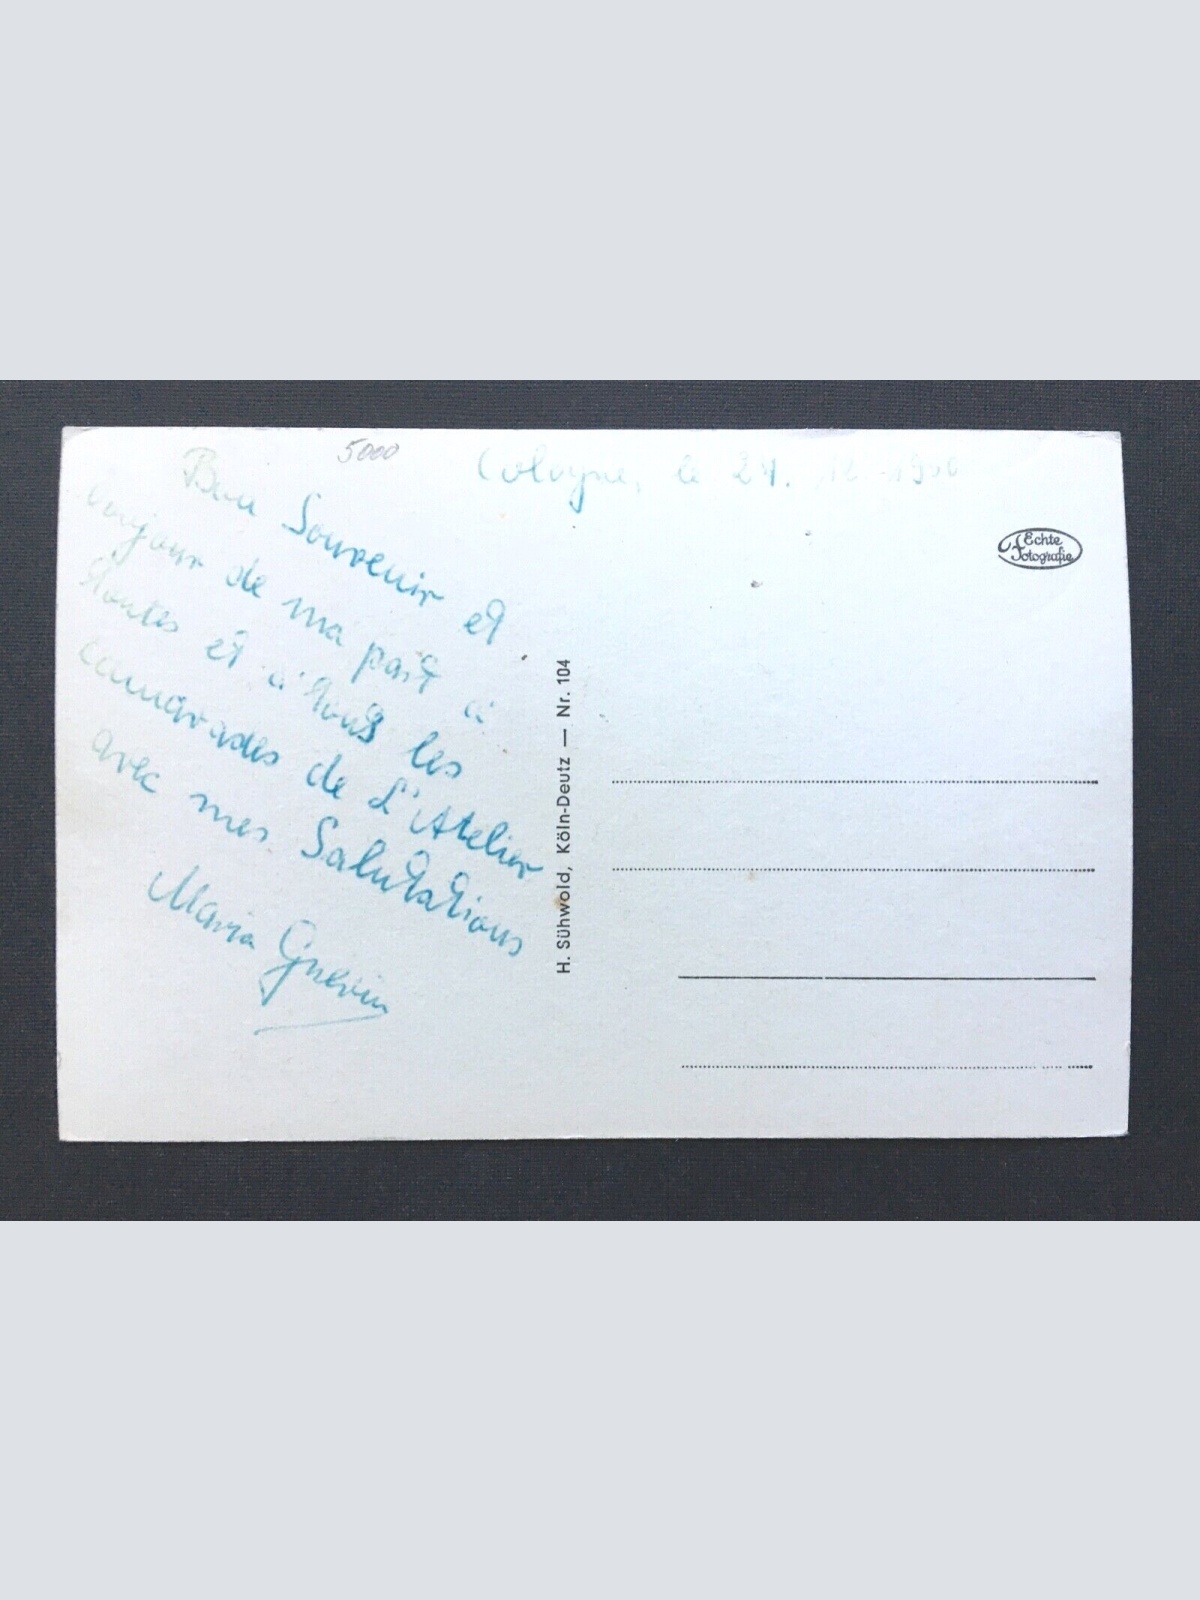 5000
Cologne, le 24. 12. 1950
Bon Souvenir et
bonjour de ma part à
toutes et à tous les
camarades de L'Atelier
avec mes Salutations
Maria Guerin
Echte
Fotografie
H. Sühwold, Köln-Deutz — Nr. 104